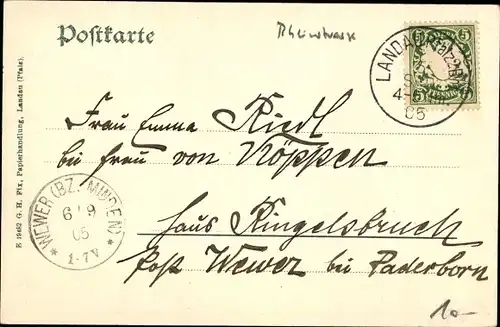 Postkarte
5
5
LANDAU
4-5
05
Frau Emma Riedl
bei Frau von Köppen
Haus Ringelsbruch
Post Wewer bei Paderborn
WEWER (BZ. MINDEN)
6 9
05
1-7V
E 19462 G. H. Fix, Papierhandlung, Landau (Pfalz).
10-